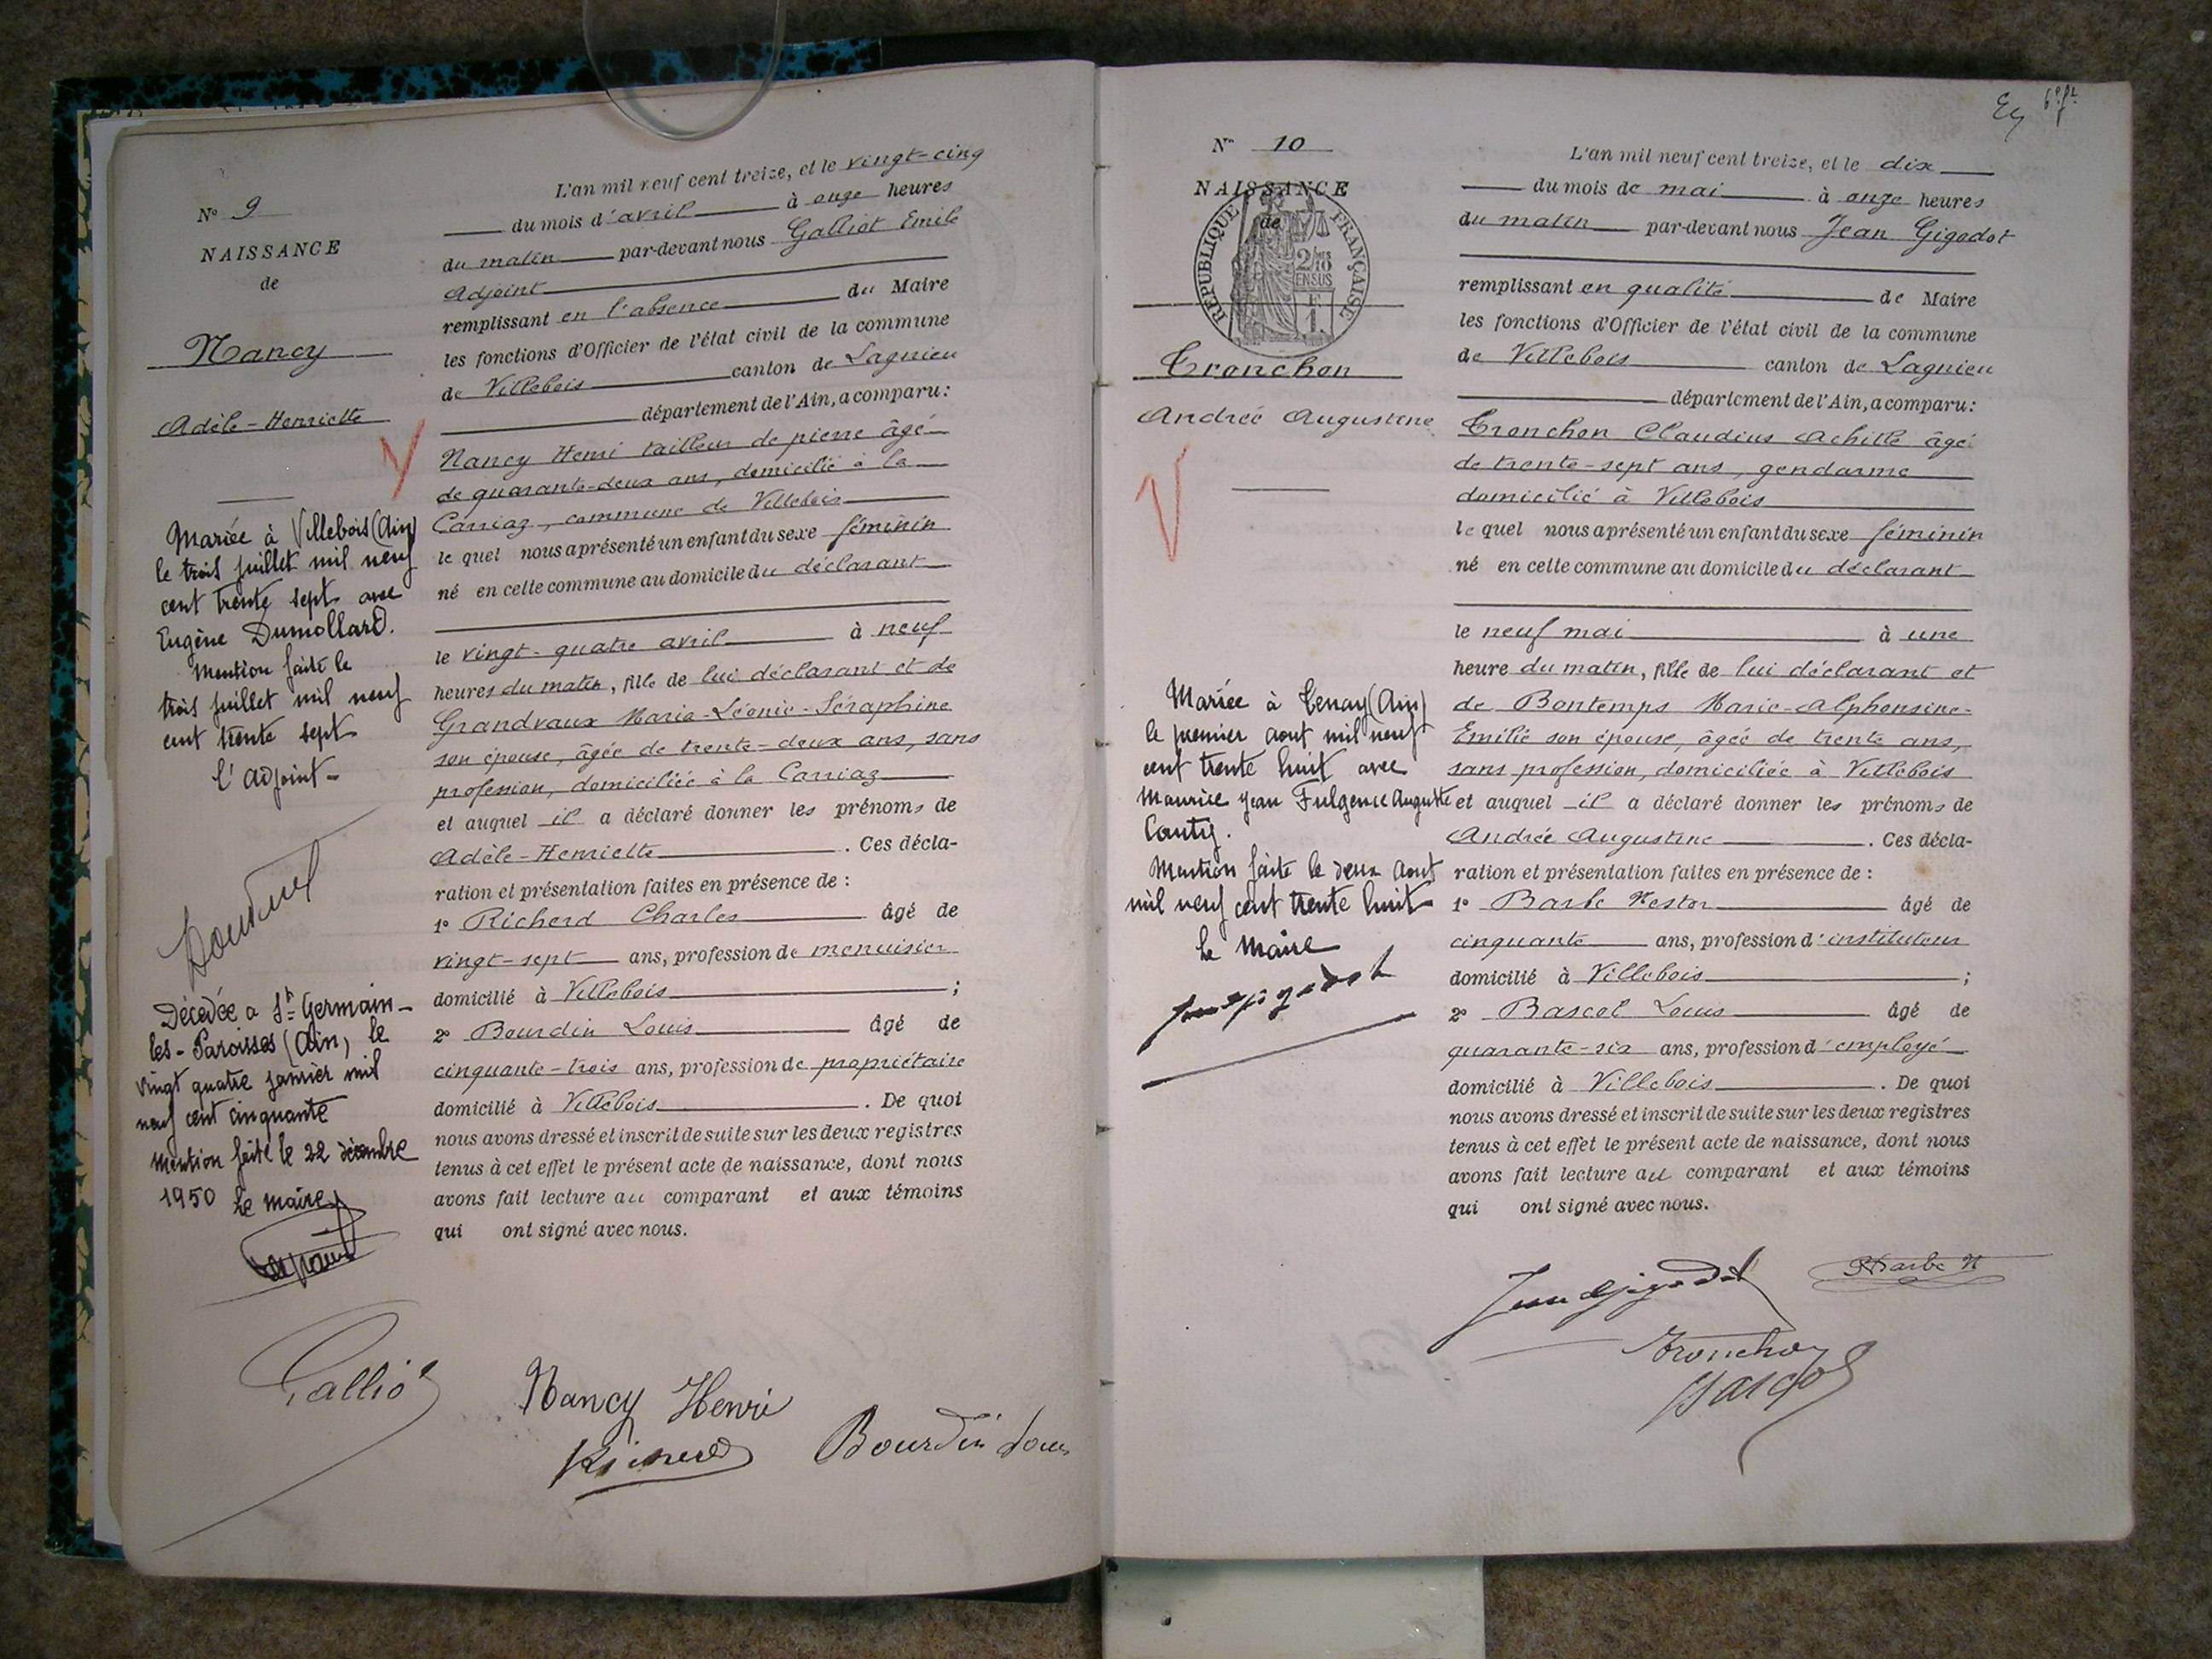 N° 9
NAISSANCE
de
Nancy
Adèle-Henriette
Mariée à Villebois (Ain)
le trois juillet mil neuf
cent trente sept avec
Eugène Dumollard.
Mention faite le
trois juillet mil neuf
cent trente sept
l'adjoint
Décédée a St Germain-
les-Paroisses (Ain, le
vingt quatre janvier mil
neuf cent cinquante
mention faite le 22 décembre
1950 le maire
L'an mil neuf cent treize, et le vingt-cinq
du mois d'avril à onze heures
du matin par-devant nous Galliot Emile
Adjoint
remplissant en l'absence du Maire
les fonctions d'Officier de l'état civil de la commune
de Villebois canton de Lagnieu
département de l'Ain, a comparu:
Nancy Henri tailleur de pierre âgé
de quarante-deux ans, domicilié à la
Carriaz, commune de Villebois
le quel nous a présenté un enfant du sexe féminin
né en cette commune au domicile du déclarant
le vingt-quatre avril à neuf
heures du matin, fille de lui déclarant et de
Grandvaux Marie-Léonie-Séraphine
son épouse, âgée de trente-deux ans, sans
profession, domiciliée à la Carriaz
et auquel il a déclaré donner les prénoms de
Adèle-Henriette. Ces décla-
ration et présentation faites en présence de :
1° Richerd Charles âgé de
vingt-sept ans, profession de menuisier
domicilié à Villebois ;
2° Bourdin Louis âgé de
cinquante-trois ans, profession de propriétaire
domicilié à Villebois. De quoi
nous avons dressé et inscrit de suite sur les deux registres
tenus à cet effet le présent acte de naissance, dont nous
avons fait lecture au comparant et aux témoins
qui ont signé avec nous.
Galliot
Nancy Henri
Richerd
Bourdin Louis
N° 10
NAISSANCE
de
REPUBLIQUE FRANÇAISE
2/10 EN SUS
Tronchon
Andrée Augustine
Mariée à Tenay (Ain)
le premier aout mil neuf
cent trente huit avec
Maurice Jean Fulgence Auguste
Canty.
Mention faite le deux Aout
mil neuf cent trente huit
le Maire
Jean Gigodot
L'an mil neuf cent treize, et le dix
du mois de mai à onze heures
du matin par-devant nous Jean Gigodot
remplissant en qualité de Maire
les fonctions d'Officier de l'état civil de la commune
de Villebois canton de Lagnieu
département de l'Ain, a comparu:
Tronchon Claudius Achille âgé
de trente-sept ans, gendarme
domicilié à Villebois
le quel nous a présenté un enfant du sexe féminin
né en cette commune au domicile du déclarant
le neuf mai à une
heure du matin, fille de lui déclarant et
de Bontemps Marie-Alphonsine-
Emilie son épouse, âgée de trente ans,
sans profession, domiciliée à Villebois
et auquel il a déclaré donner les prénoms de
Andrée Augustine. Ces décla-
ration et présentation faites en présence de :
1° Barbe Nestor âgé de
cinquante ans, profession d'instituteur
domicilié à Villebois ;
2° Bascol Louis âgé de
quarante-six ans, profession d'employé
domicilié à Villebois. De quoi
nous avons dressé et inscrit de suite sur les deux registres
tenus à cet effet le présent acte de naissance, dont nous
avons fait lecture au comparant et aux témoins
qui ont signé avec nous.
Jean Gigodot
Barbe N
Tronchon
Bascol